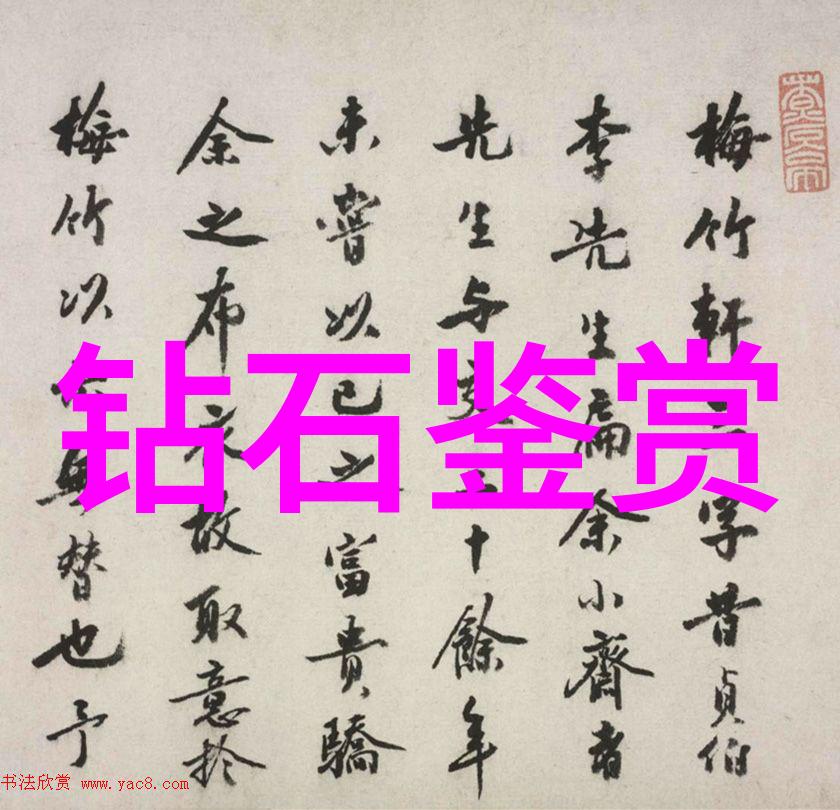 梅竹軒字昔貞伯
李先生扁余小齋者
先生与交十餘年
未嘗以已之富貴驕
余之布衣故取意於
梅竹以替也予
钻石鉴赏
书法欣赏 www.yac8.com